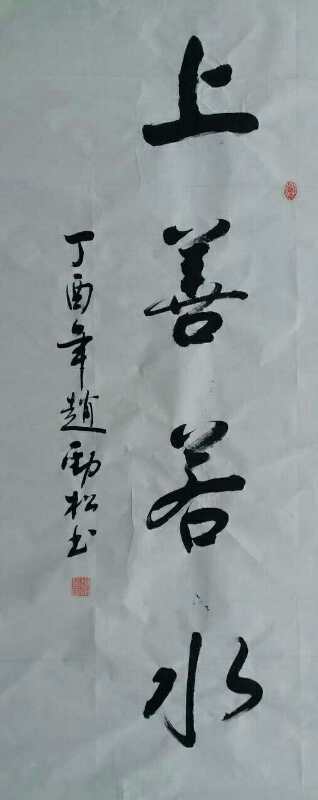 上善若水
丁酉年趙勁松书